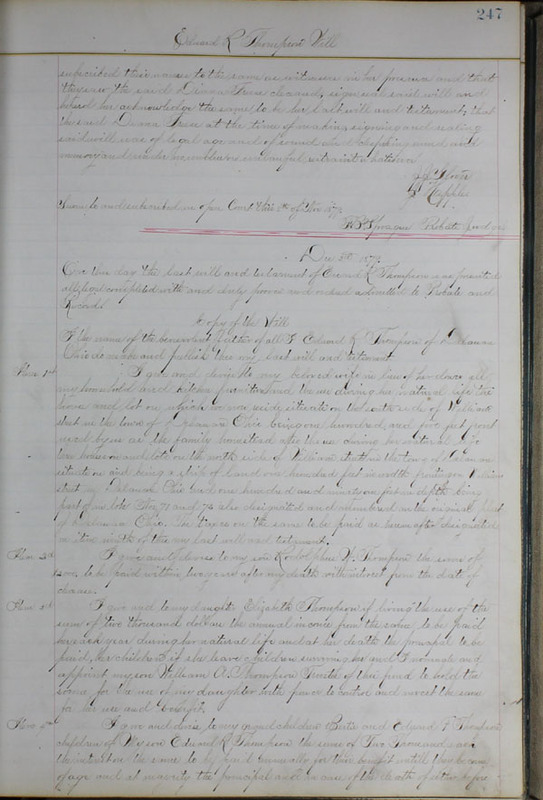 247
Edward R Thompson's Will
subscribed their names to the same as witnesses in her presence and that
they saw the said Diana sign and seal said will and
heard her acknowledge the same to be her last will and testament, that
the said Diana at the time of making signing and sealing
said will was of legal age and of sound and disposing mind and
memory and under no unlawful restraint
Sworn to and subscribed in open Court this 5th of Nov 187
B F Sprague Probate Judge
Dec 5th 187
On this day the last will and testament of Edward R Thompson
completed with and duly proved and ordered admitted to Probate and
Record
Copy of the Will
In the name of the benevolent Father of all I Edward R Thompson of Delaware
Ohio do make and publish this my last will and testament
Item 1st
I give and devise to my beloved wife in lieu of her dower all
my household and kitchen furniture and the use during her natural life the
house and lot on which we now reside situate on the south side of William
street in the town of Delaware Ohio being one hundred and five feet front
used by us as the family homestead also the use during her natural life
the house and lot on the north side of William street in the town of Delaware
situate on and being a strip of land one hundred feet in width fronting on William
street in Delaware Ohio and one hundred and ninety one feet in depth being
part of in lots Nos 77 and 78 as designated and numbered on the original plat
of Delaware Ohio. The taxes on the same to be paid as herein after designated
in item of this my last will and testament.
Item 2d
I give and devise to my son Rodolphus W. Thompson the sum of
to be paid within two years after my death with interest from the date of
Item 3d
I give to my daughter Elizabeth Thompson if living the use of the
sum of two thousand dollars the annual income from the same to be paid
her each year during her natural life and at her death the principal to be
paid her children if she leave children surviving her and I nominate and
appoint my son William A. Thompson Trustee of this fund to hold the
same for the use of my daughter with power to control and invest the same
for her use and benefit.
Item 4th
I give and devise to my grand children Berta and Edward F Thompson
children of my son Edward R Thompson the sum of Two Thousand
the interest on the same to be paid annually for their benefit until they become
of age and at majority the principal and in case of the death of either before